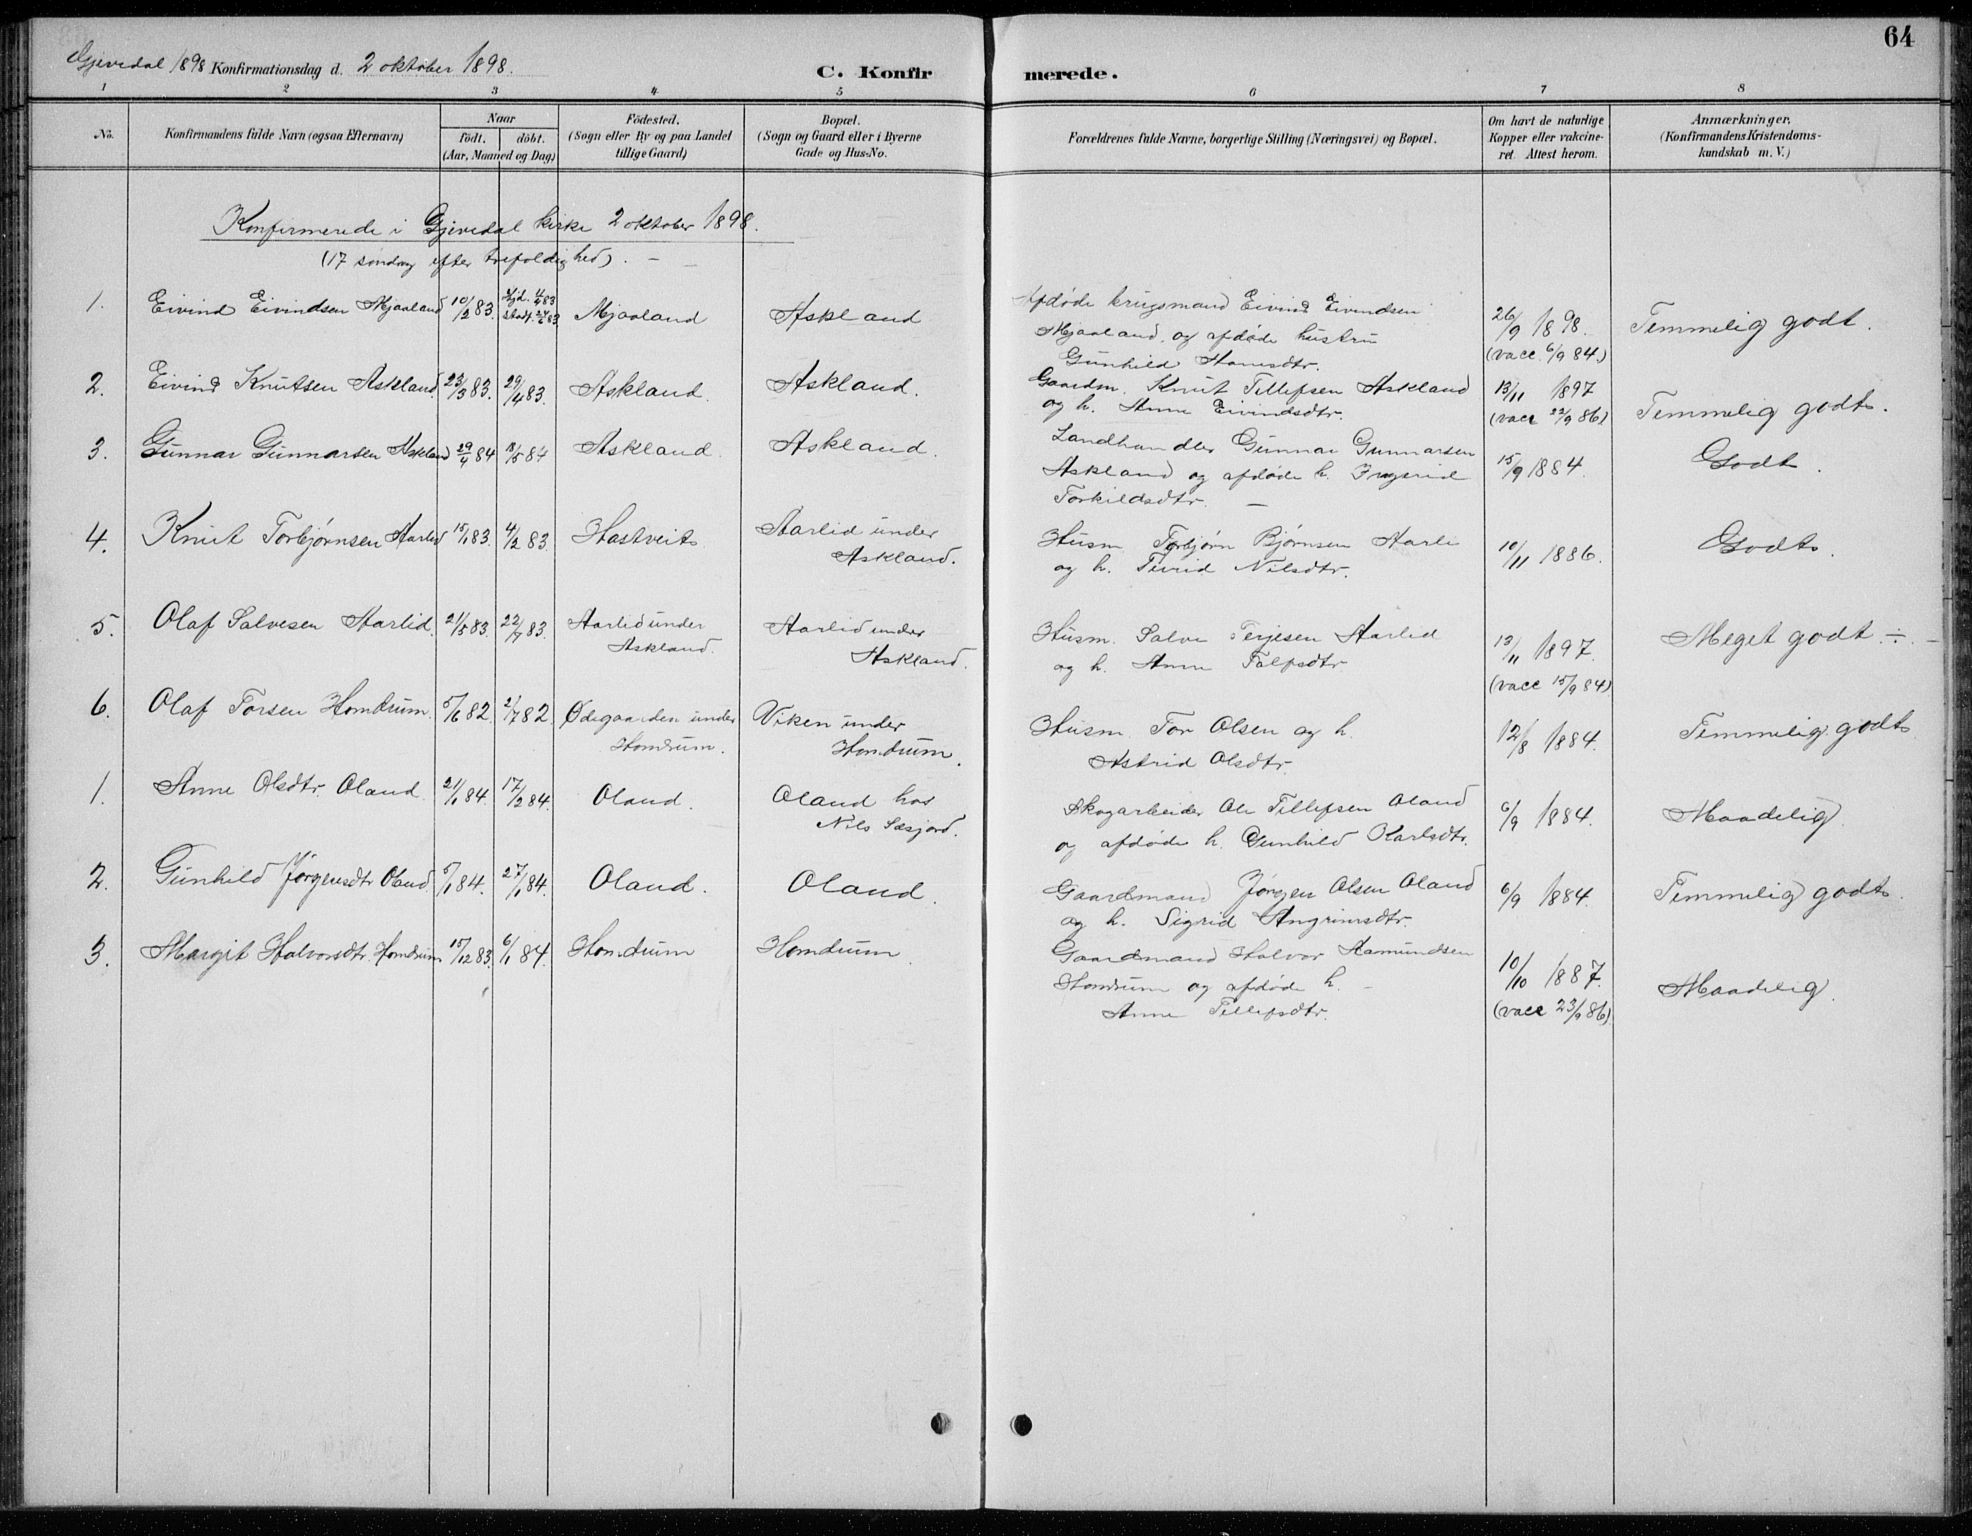 64
Gjevedal 1898 Konfirmationsdag d. 2 oktober 1898.
C. Konfirmerede.
1 2 3 4 5 6 7 8
No.
Konfirmandens fulde Navn (ogsaa Efternavn)
Naar
födt. döbt.
(Aar, Maaned og Dag)
Födested.
(Sogn eller By og paa Landet
tillige Gaard)
Bopæl.
(Sogn og Gaard eller i Byerne
Gade og Hus-No.
Forældrenes fulde Navne, borgerlige Stilling (Næringsvei) og Bopæl.
Om havt de naturlige
Kopper eller vakcine-
ret. Attest herom.
Anmærkninger.
(Konfirmandens Kristendoms-
kundskab m. V.)
Konfirmerede i Gjevedal kirke 2 oktober 1898.
(17 søndag efter trefoldighed). —
1. Eivind Eivindsen Mjaaland 10/2 83. Hjd. 4/83 Mjaaland Askland
Afdøde brugsmand Eivind Eivindsen
Mjaaland, og afdøde hustru
Gunhild
26/9 1898.
(vacc. 6/9 84.)
Temmelig godt.
2. Eivind Knutsen Askland 23/3 83. 29/4 83. Askland. Askland.
Gaardm. Knut Tellefsen Askland
og h. Anne Eivindsdtr.
13/11 1897
(vacc 22/9 86)
Temmelig godt.
3. Gunnar Gunnarsen Askland 29/4 84 18/5 84 Askland. Askland.
Landhandler Gunnar Gunnarsen
Askland og afdøde h. Ingerid
Torkildsdtr. —
15/9 1884.
Godt.
4. Knut Torbjørnsen Aarlid 15/1 83. 4/2 83. Hastveit Aarlid under
Askland.
Husm. Torbjørn Bjørnsen Aarli
og h. Nilsdtr.
10/11 1886.
Godt.
5. Olaf Salvesen Aarlid. 21/5 83. 22/7 83. Aarlid under
Askland.
Aarlid under
Askland.
Husm. Salve Terjesen Aarlid
og h. Anne
13/11 1897.
(vacc 15/9 84)
Meget godt ÷
6. Olaf Torsen Homdrum. 5/6 82. 2/7 82. Ødegaarden under
Homdrum.
Viken under
Homdrum.
Husm. Tor Olsen og h.
Astrid Olsdtr.
12/8 1884.
Temmelig godt
1. Anne Olsdtr. Oland 21/1 84. 17/2 84. Oland. Oland hos
Nils Sæsjord.
Skogarbeider Ole Tellefsen Oland
og afdøde h. Gunhild Karlsdtr.
6/9 1884.
Maadelig
2. Gunhild Jørgensdtr Oland 5/1 84. 27/1 84. Oland. Oland.
Gaardmand Jørgen Olsen Oland
og h. Sigrid Angrimsdtr.
6/9 1884.
Temmelig godt.
3. Margit Halvorsdtr. Homdrum 15/12 83. 6/1 84. Homdrum Homdrum.
Gaardmand Halvor Aamundsen
Homdrum og afdøde h. —
Anne Tellefsdtr.
10/10 1887.
(vacc 23/9 86)
Maadelig.